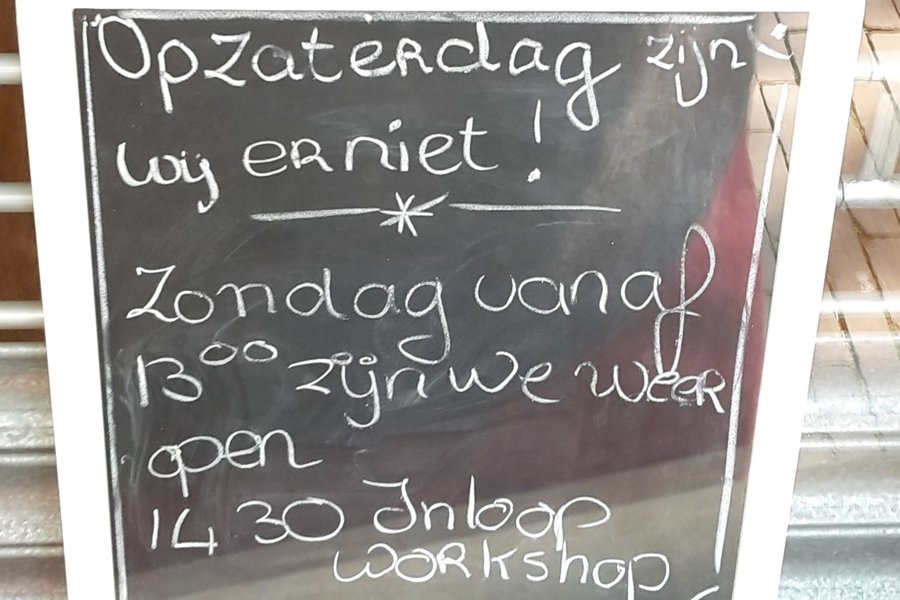 Op zaterdag zijn
wij er niet!
Zondag vanaf
13⁰⁰ zijn we weer
open
14 30 Inloop
workshop